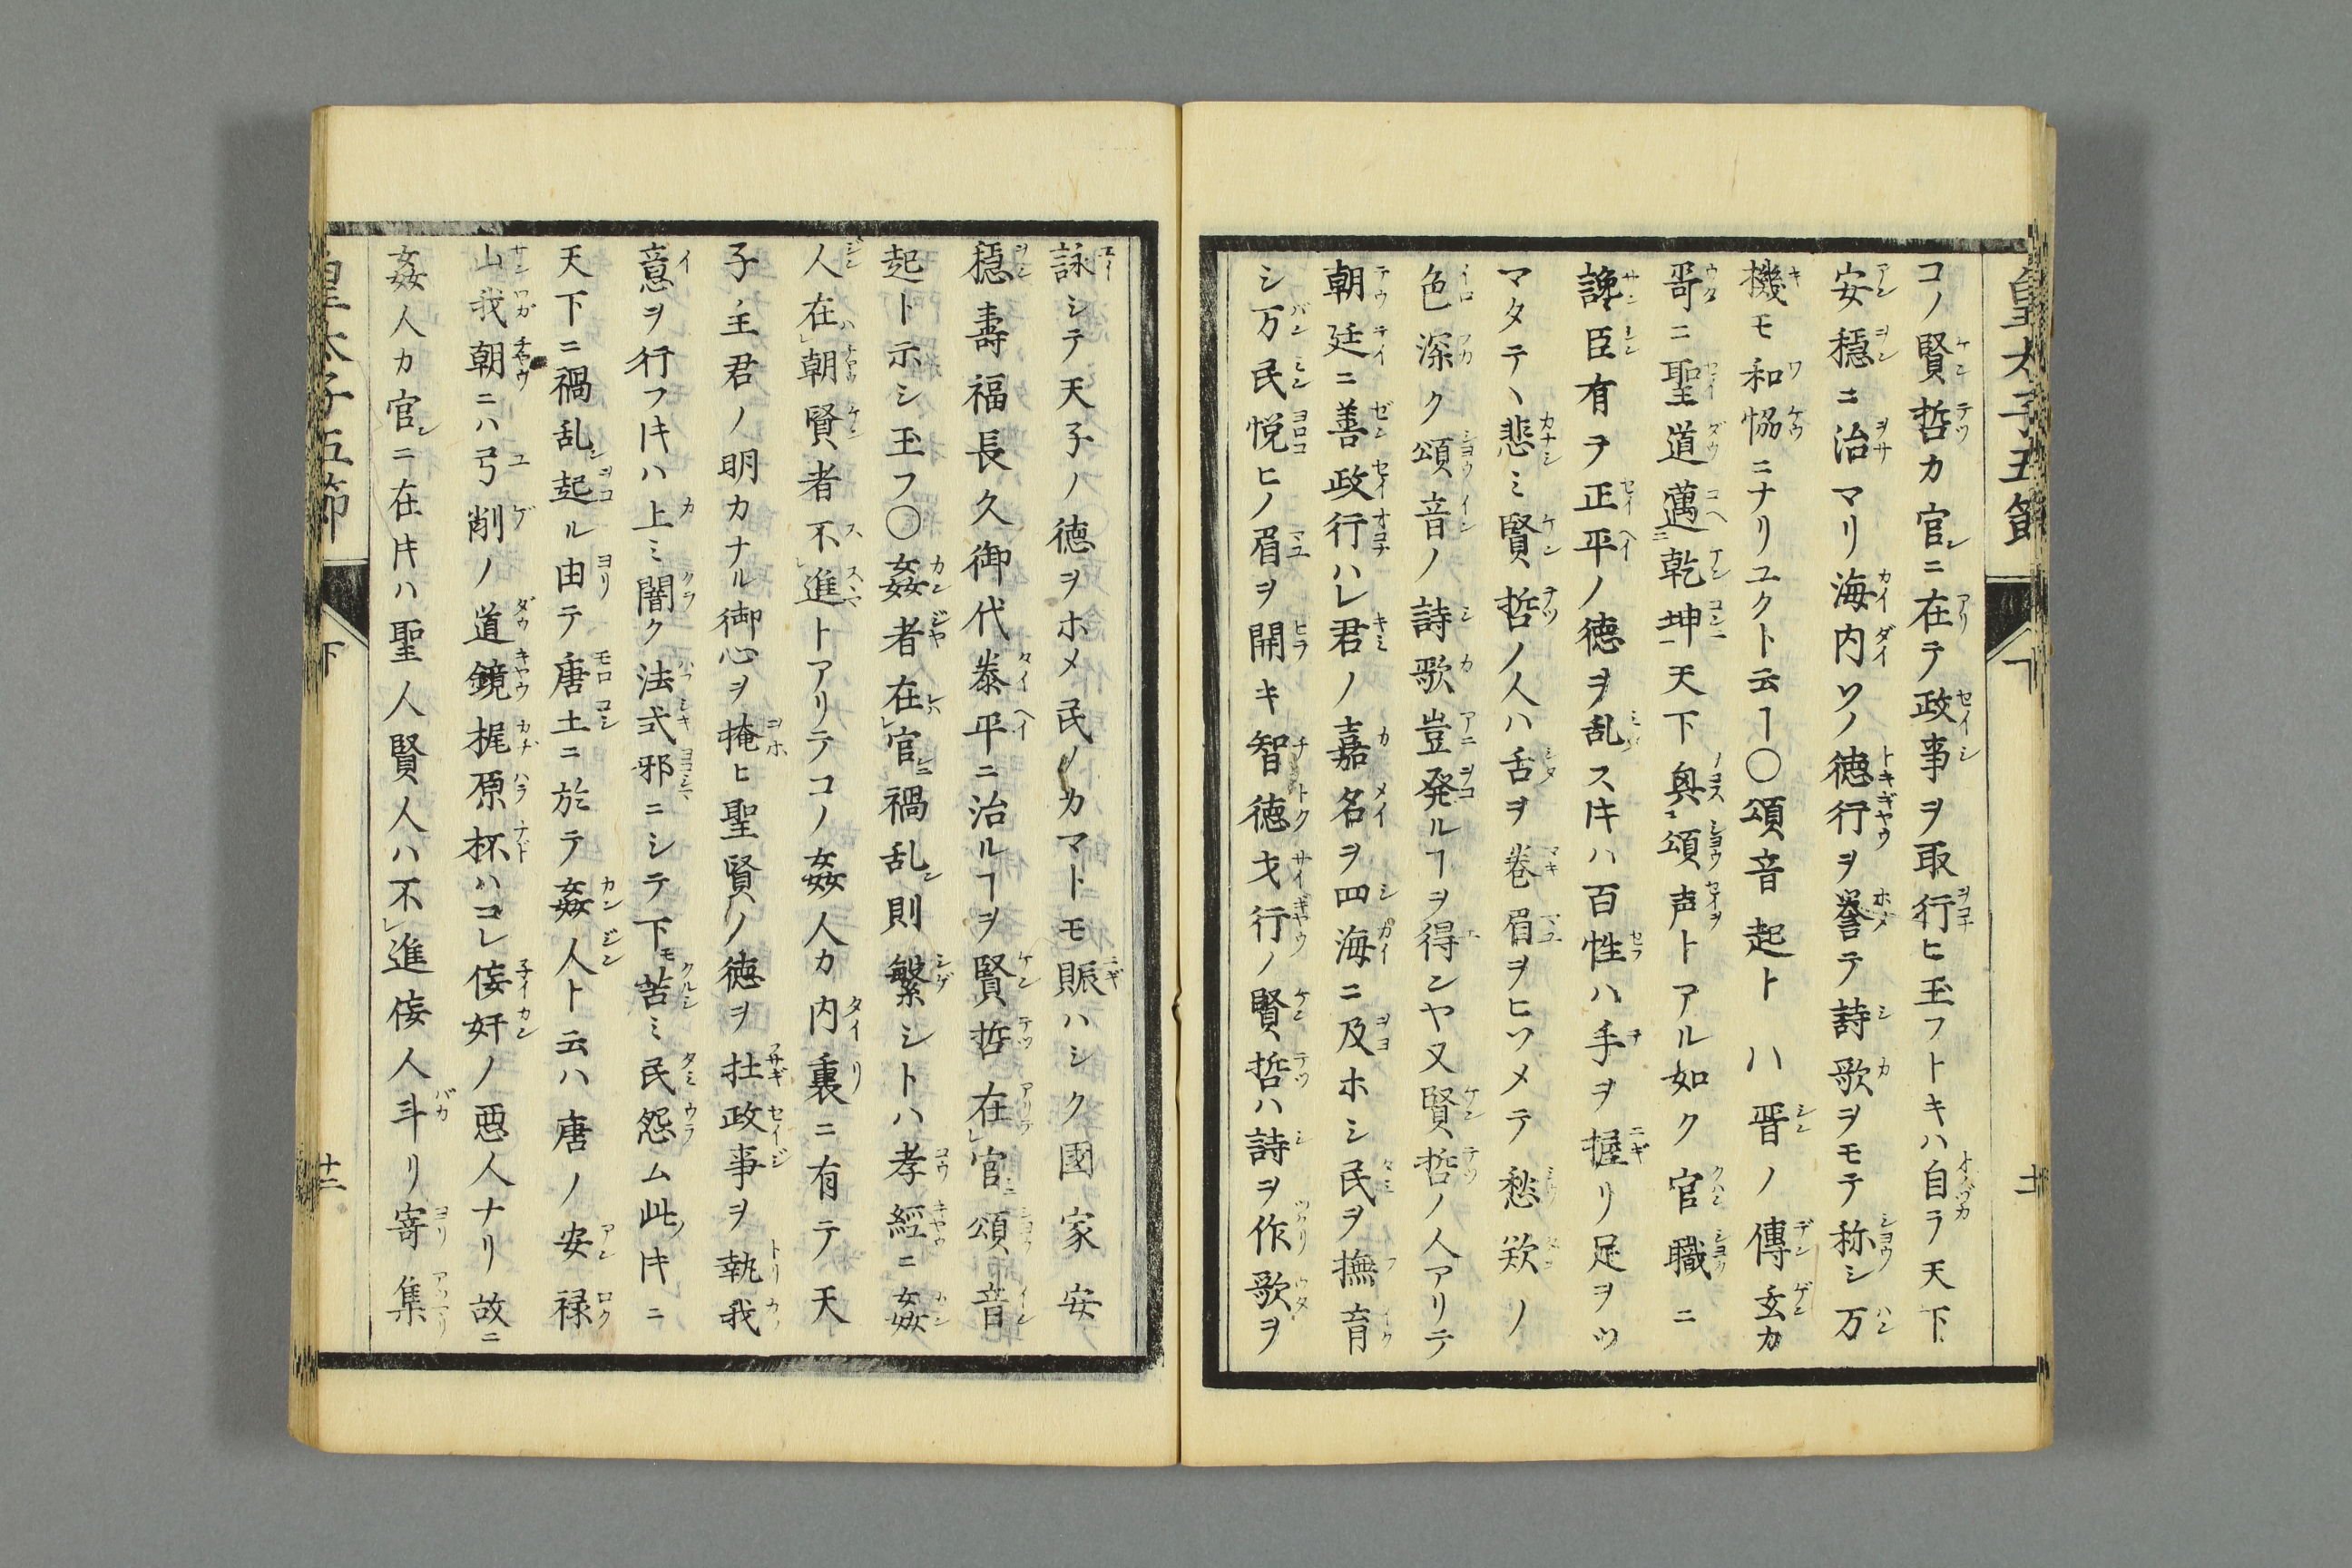 皇太子五節
下
コノ賢哲カ官ニ在テ政事ヲ取行ヒ玉フトキハ自ラ天下
安穏ニ治マリ海内ソノ徳行ヲ誉テ詩歌ヲモテ称シ万
機モ和恊ニナリユクト云ヿ〇頌音起トハ晋ノ傳玄カ
哥ニ聖道邁乾坤天下與頌声トアル如ク官職ニ
讒臣有ヲ正平ノ徳ヲ乱スキハ百性ハ手ヲ握リ足ヲツ
マタテヽ悲ミ賢哲ノ人ハ舌ヲ巻眉ヲヒソメテ愁歎ノ
色深ク頌音ノ詩歌豈発ルヿヲ得ンヤ又賢哲ノ人アリテ
朝廷ニ善政行ハレ君ノ嘉名ヲ四海ニ及ホシ民ヲ撫育
シ万民悦ヒノ眉ヲ開キ智徳才行ノ賢哲ハ詩ヲ作歌ヲ
詠シテ天子ノ徳ヲホメ民ノカマトモ賑ハシク國家安
穏壽福長久御代泰平ニ治ルヿヲ賢哲在官頌音
起ト示シ玉フ〇姦者在官禍乱則繁シトハ孝經ニ姦
人在朝賢者不進トアリテコノ姦人カ内裏ニ有テ天
子主君ノ明カナル御心ヲ掩ヒ聖賢ノ徳ヲ拄政事ヲ執我
意ヲ行フキハ上ミ闇ク法式邪ニシテ下モ苦ミ民怨ム此キニ
天下ニ禍乱起ル由テ唐土ニ於テ姦人ト云ハ唐ノ安禄
山我朝ニハ弓削ノ道鏡梶原杯ハコレ侫奸ノ悪人ナリ故ニ
姦人カ官ニ在キハ聖人賢人ハ不進侫人斗リ寄集
皇太子五節
下
十二